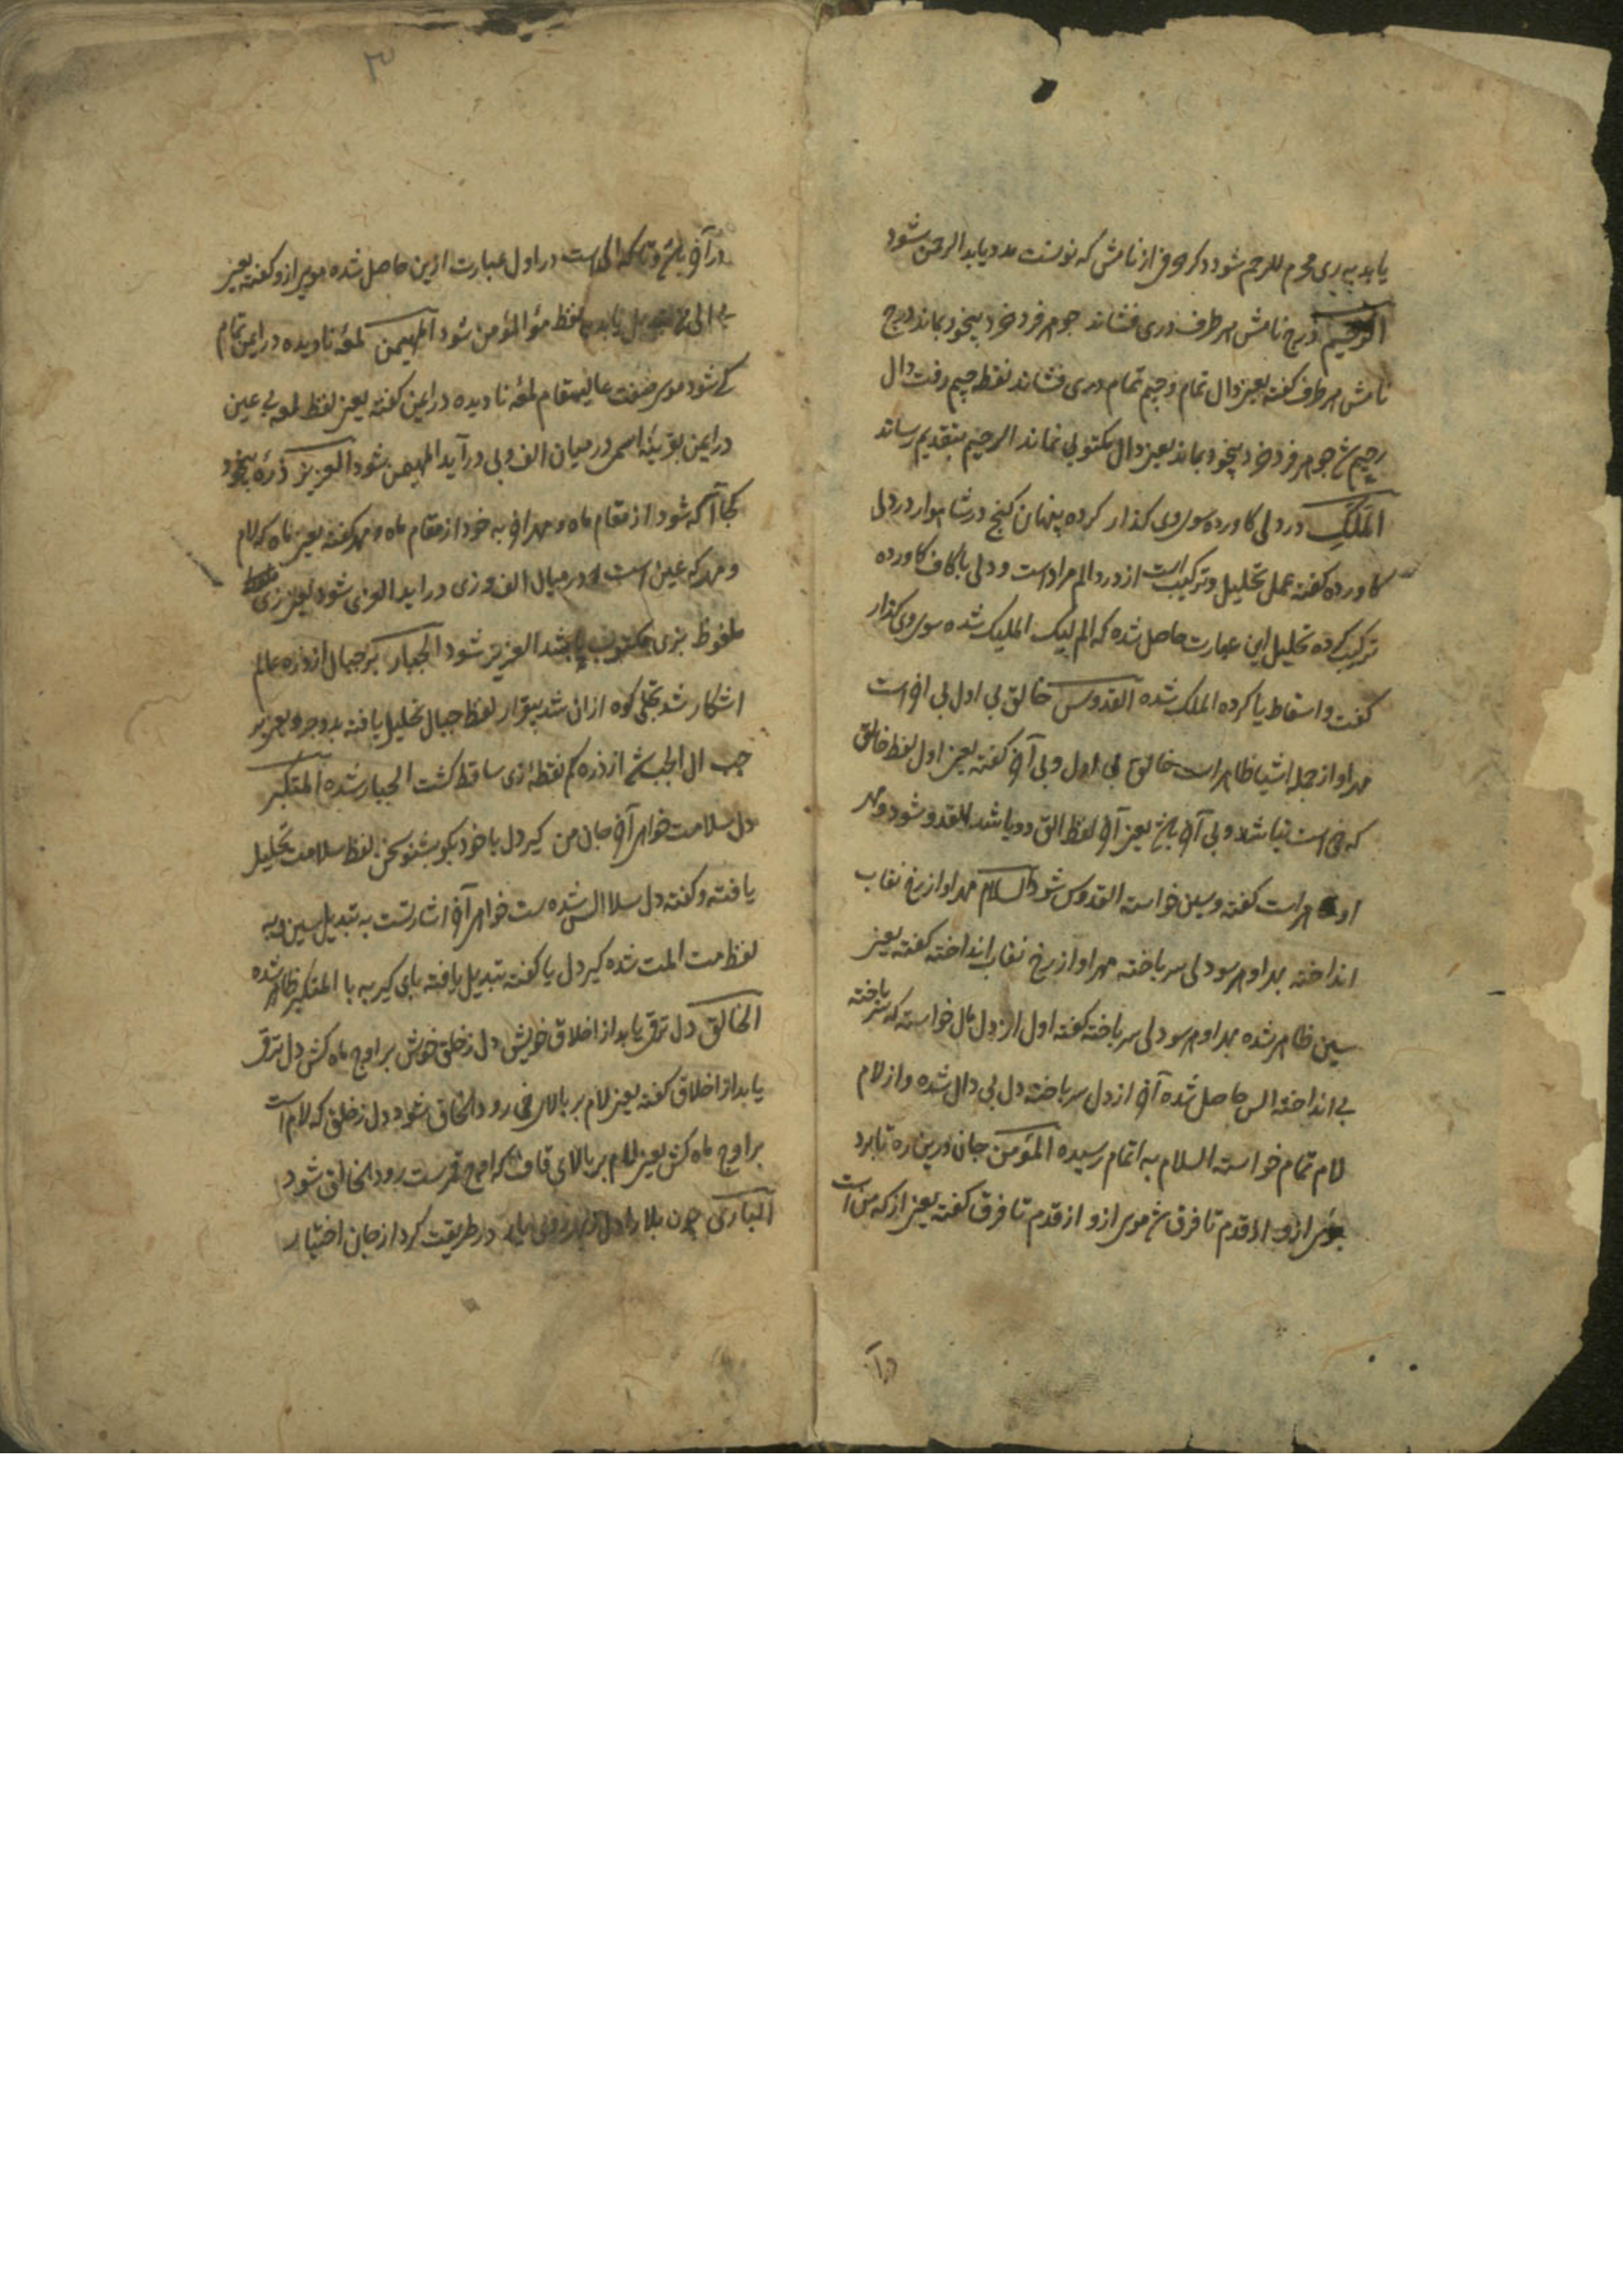 یابد به ری محرم للرحم شود دکر حرفی از نامش که نونست مدد یابد الرحمن شود
الرحیم درج نامش هر طرف دری فشاند جوهر فرد خرد بیخود بماند درج
نامش هر طرف گفته یعنی دال تمام و جیم تمام دری فشاند نقطه جیم رفت دال
رحیم شد جوهر فرد خرد بیخود بماند یعنی دال مکتوبی نماند الرحیم بتقدیم رساند
الملک درد لی کاورده سوی وی گذار کرده پنهان گنج در شاهوار در دلی
کاورده گفته عمل تحلیل و ترکیب است از درد الم مراد است و دلی با کاف کاورده
ترکیب کرده تحلیل این عبارت حاصل شده که الم لیک الملیک شده سوی وی گذار
گفت و اسقاط یا کرده الملک شده القدوس خالق بی اول بی اخر است
مهر او از جمله اشیا ظاهر است خالق بی اول و بی آخر گفته یعنی اول لفظ خالق
که خی است نباشد و بی آخر یعنی آخر لفظ الق دو باشد القدو شود و مهر
او ظاهر است گفته و سین خواسته القدوس شود السلام مهر او از رخ نقاب
انداخته بهر او هر سو دلی سر باخته مهر او از رخ نقاب انداخته گفته یعنی
سین ظاهر شده بهر او هر سو دلی سر باخته گفته اول از دل بال خواسته که سر باخته
بی انداخته الس حاصل شده آخر از دل سر باخته دل بی دال شده و از لام
لام تمام خواسته السلام به اتمام رسیده المؤمن جان درین ره تا برد
بوئی ازو از قدم تا فرق شد موی ازو از قدم تا فرق گفته یعنی از که من است
در آ
۳
در آخر است در اول عبارت ازین حاصل شده موی ازو گفته یعنی
یابد به لفظ مؤ المؤمن شود المهیمن لمعهٔ نادیده در ایمن تمام
کی شود موسی صفت عالیمقام لمعهٔ نادیده در ایمن گفته یعنی لفظ لمعه بی عین
در ایمن بقرینهٔ اسم در میان الف و بی در آید المهیمن شود العزیز ذرهٔ بیخود
کجا آگه شود از مقام ماه و مهر ای به خود از مقام ماه و مهر گفته یعنی ماه که لام
و مهر که عین است در میان الف و زی در آید العزی شود یعنی زی
ملفوظ بزی مکتوب العزیز شود الجبار بر جبال از ذره عالم
اشکار شد تجلی کوه ازان شد بیقرار لفظ جبال تحلیل یافته بدو جزو یعنی بر
جب ال الجب شد از ذره کم نقطهٔ زی ساقط گشت الجبار شده المتکبر
دل سلامت خواهی آخر جان من گیر دل با خود بگو بشنو سخن لفظ سلامت تحلیل
یافته و گفته دل سلا الس شده ست خواهی آخر اشارتست به تبدیل سین به
لفظ مت المت شده گیر دل یا گفته تبدیل یافته یای گیر به با المتکبر ظاهر شده
الخالق دل ترقی یابد از اخلاق خویش دل ز خلق خوش بر اوج ماه کش دل ترقی
یابد از اخلاق گفته یعنی لام بر بالای خی رود الخاق شود دل ز خلق که لام است
بر اوج ماه کش یعنی لام بر بالای قاف که اوج قمرست رود الخالق شود
الباری چون بلا را دل در طریقت کرد از جان اختیار